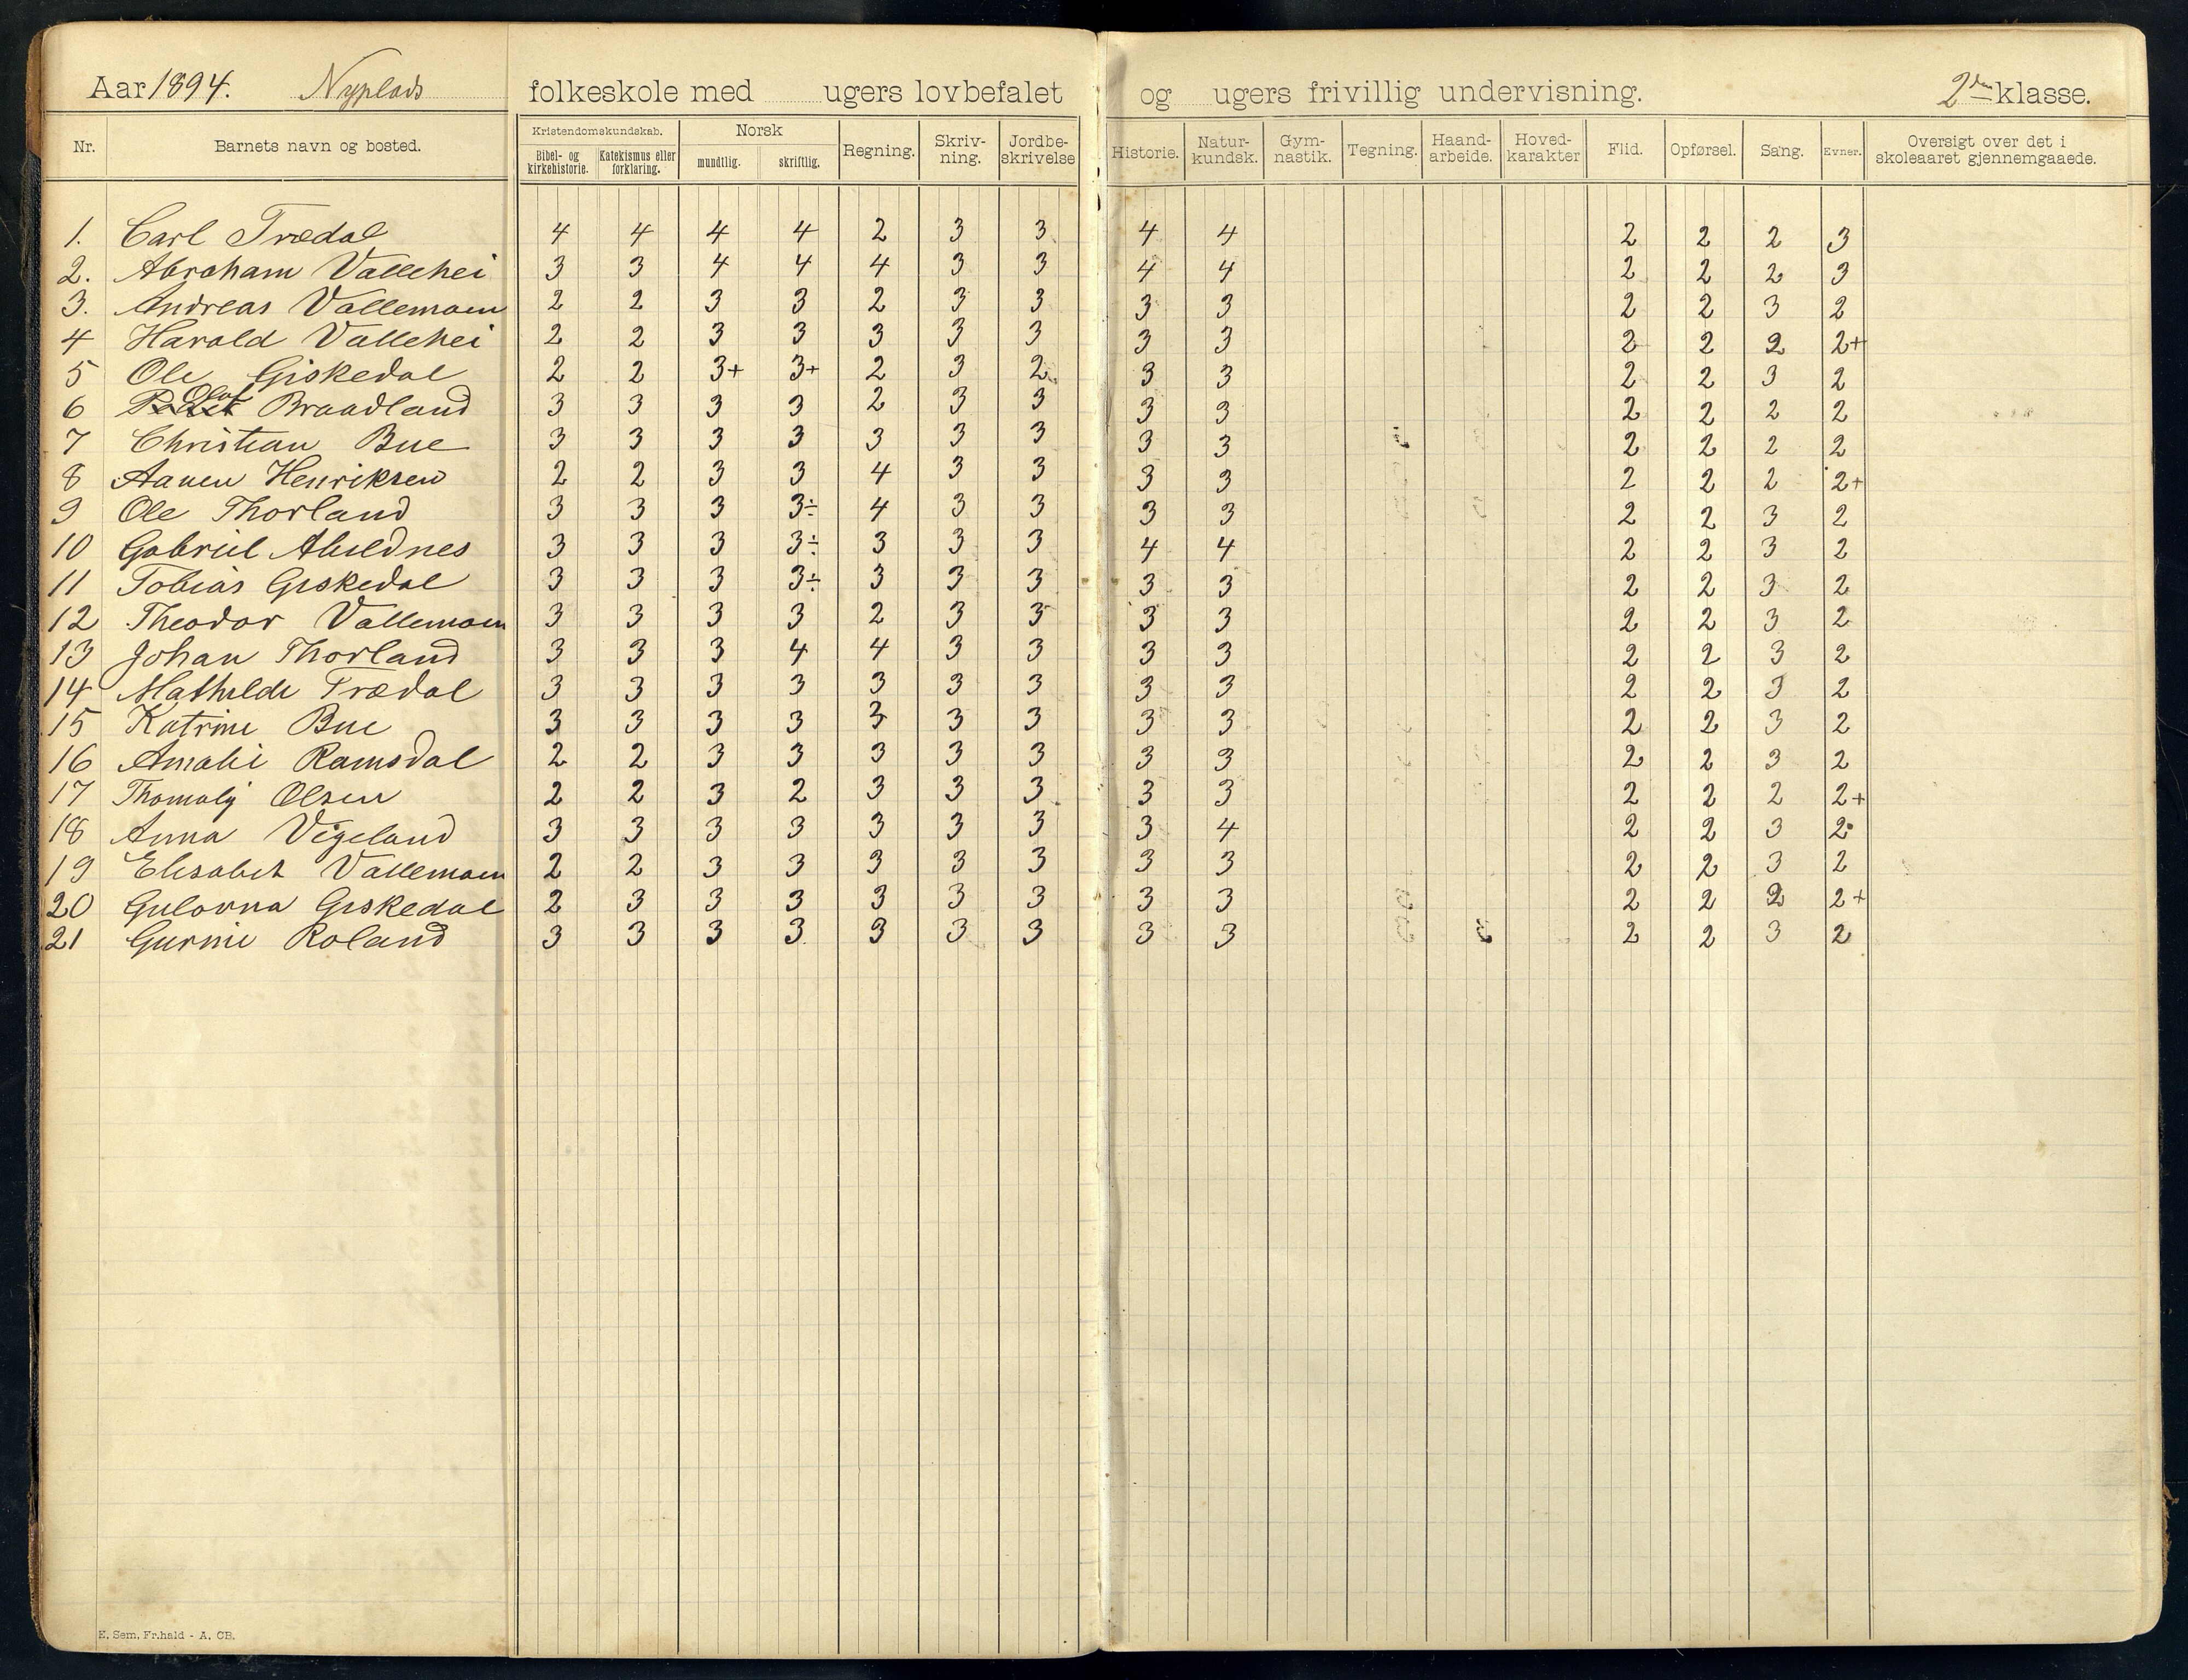 Aar 1894. Nyplads folkeskole med ugers lovbefalet og ugers frivillig undervisning. 2den klasse.
Nr. Barnets navn og bosted. Kristendomskundskab. Bibel- og kirkehistorie. Katekismus eller forklaring. Norsk mundtlig. skriftlig. Regning. Skriv-ning. Jordbe-skrivelse Historie. Natur-kundsk. Gym-nastik. Tegning. Haand-arbeide. Hoved-karakter Flid. Opførsel. Sang. Evner. Oversigt over det i skoleaaret gjennemgaaede.
1. Carl Trædal 4 4 4 4 2 3 3 4 4 2 2 2 3
2. Abraham Vallehei 3 3 4 4 4 3 3 4 4 2 2 2 3
3. Andreas Vallemoen 2 2 3 3 2 3 3 3 3 2 2 3 2
4 Harald Vallehei 2 2 3 3 3 3 3 3 3 2 2 2 2+
5 Ole Giskedal 2 2 3+ 3+ 2 3 2 3 3 2 2 3 2
6 Olaf Braadland 3 3 3 3 2 3 3 3 3 2 2 2 2
7 Christian Bue 3 3 3 3 3 3 3 3 3 2 2 2 2
8 Aanen Henriksen 2 2 3 3 4 3 3 3 3 2 2 2 2+
9 Ole Thorland 3 3 3 3÷ 4 3 3 3 3 2 2 3 2
10 Gabriel 3 3 3 3÷ 3 3 3 4 4 2 2 3 2
11 Tobias Giskedal 3 3 3 3÷ 3 3 3 3 3 2 2 3 2
12 Theodor Vallemoen 3 3 3 3 2 3 3 3 3 2 2 3 2
13 Johan Thorland 3 3 3 4 4 3 3 3 3 2 2 3 2
14 Mathilde Trædal 3 3 3 3 3 3 3 3 3 2 2 3 2
15 Katrine Bue 3 3 3 3 3 3 3 3 3 2 2 3 2
16 Amalie Ramsdal 2 2 3 3 3 3 3 3 3 2 2 3 2
17 Thomaly Olsen 2 2 3 2 3 3 3 3 3 2 2 2 2+
18 Anna Vigeland 3 3 3 3 3 3 3 3 4 2 2 3 2
19 Elisabet Vallemoen 2 2 3 3 3 3 3 3 3 2 2 3 2
20 Gulovna Giskedal 2 3 3 3 3 3 3 3 3 2 2 2 2+
21 Gurine Roland 3 3 3 3 3 3 3 3 3 2 2 3 2
E. Sem, Fr.hald - A. CB.